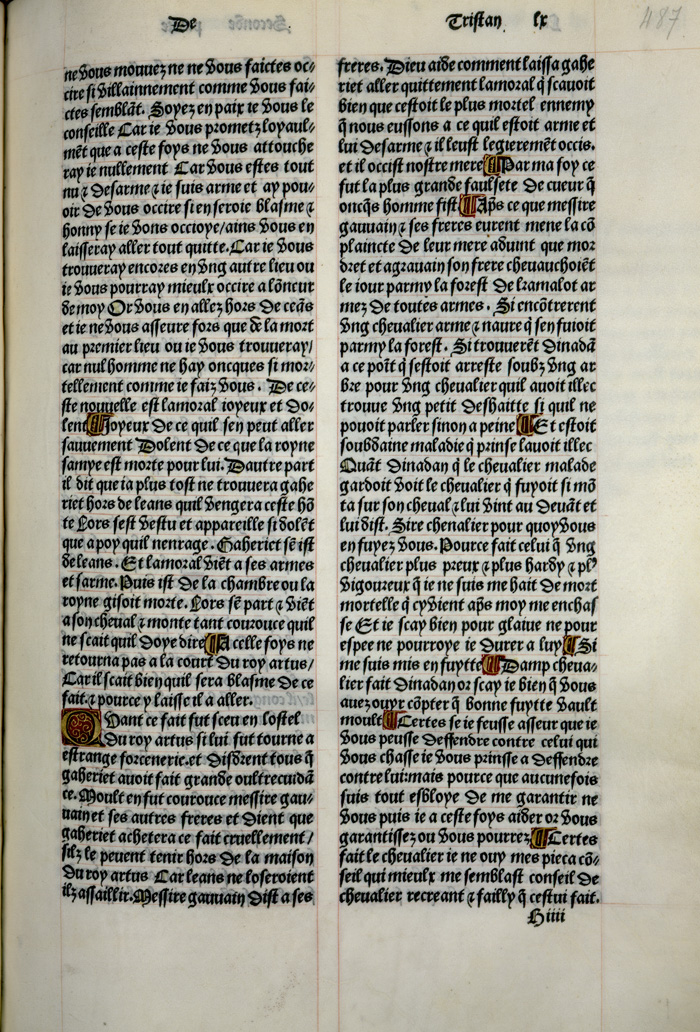 De
Tristan lx
487
ne vous mouuez ne ne vous faictes oc⸗
cire si villainnement comme vous fai⸗
ctes semblāt. Soyez en paix ie vous le
conseille Car ie vous prometz loyaul⸗
mēt que a ceste foys ne vous attouche
ray ie nullement Car vous estes tout
nu ⁊ desarme ⁊ ie suis arme et ay pou⸗
oir de vous occire si en seroie blasme ⁊
honny se ie vons occioye/ains vous en
laisseray aller tout quitte. Car ie vous
trouueray encores en vng autre lieu ou
ie vous pourray mieulx occire a lōneur
de moy Or vous en allez hors de ceās
et ie ne vous asseure fors que de la mort
au premier lieu ou ie vous trouueray/
car nul homme ne hay oncques si mor⸗
tellement comme ie faiz vous. De ce⸗
ste nouuelle est lamoral ioyeux et do⸗
lent ¶ Joyeux de ce quil sen peut aller
sauuement Dolent de ce que la royne
samye est morte pour lui. Dautre part
il dit que ia plus tost ne trouuera gahe
riet hors de leans quil vengera ceste hō
te Lors sest vestu et appareille si dolēt
que a poy quil nenrage. Gaheriet sē ist
de leans. Et lamoral viēt a ses armes
et sarme. Puis ist de la chambre ou la
royne gisoit morte. Lors sē part ⁊ viēt
a son cheual ⁊ monte tant courouce quil
ne scait quil doye dire ¶ A celle foys ne
retourna pas a la court du roy artus/
Car il scait bien quil sera blasme de ce
fait. ⁊ pource y laisse il a aller.
Quant ce fait fut sceu en lostel
du roy artus si lui fut tourne a
estrange forcenerie. et disdrent tous q̄
gaheriet auoit fait grande oultrecuidā
ce. Moult en fut courouce messire gau⸗
uain et ses autres freres et dient que
gaheriet achetera ce fait cruellement/
silz le peuent tenir hors de la maison
du roy artus Car leans ne loseroient
ilz assaillir. Messire gauuain dist a ses
freres. Dieu aide comment laissa gahe
riet aller quittement lamoral q̄ scauoit
bien que cestoit le plus mortel ennemy
q̄ nous eussons a ce quil estoit arme et
lui desarme ⁊ il leust legieremēt occis.
et il occist nostre mere ¶ Par ma foy ce
fut la plus grande faulsete de cueur q̄
oncq̄s homme fist ¶ Ap̄s ce que messire
gauuain ⁊ ses freres eurent mene la cō
plaincte de leur mere aduint que mor
dret et agrauain son frere cheuauchoiēt
le iour parmy la forest de kamalot ar
mez de toutes armes. Si encōtrerent
vng cheualier arme ⁊ naure q̄ sen fuioit
parmy la forest. Si trouuerēt dinadā
a ce poīt q̄ sestoit arreste soubz vng ar
bre pour vng cheualier quil auoit illec
trouue vng petit deshaitte si quil ne
pouoit parler sinon a peine ¶ Et estoit
soubdaine maladie q̄ prinse lauoit illec
Quāt dinadan q̄ le cheualier malade
gardoit voit le cheualier q̄ fuyoit si mō
ta sur son cheual ⁊ lui vint au deuāt et
lui dist. Sire chenalier pour quoy vous
en fuyez vous. Pource fait celui q̄ vng
cheualier plus preux ⁊ plus hardy ⁊ plꝰ
vigoureux q̄ ie ne suis me hait de mort
mortelle q̄ cy vient ap̄s moy me enchas
se Et ie scay bien pour glaiue ne pour
espee ne pourroye ie durer a luy ¶ Si
me suis mis en fuytte ¶ Damp cheua⸗
lier fait dinadan or scay ie bien q̄ vous
auez ouyr cōpter q̄ bonne fuytte vault
moult ¶ Certes se ie feusse asseur que ie
vous peusse deffendre contre celui qui
vous chasse ie vous prinsse a deffendre
contre lui: mais pource que aucunefois
suis tout esbloye de me garantir ne
vous puis ie a ceste foys aider or vous
garantissez ou vous pourrez ¶ Certes
fait le cheualier ie ne ouy mes pieca cō⸗
seil qui mieulx me semblast conseil de
cheualier recreant ⁊ failly q̄ cestui fait.
H iiii